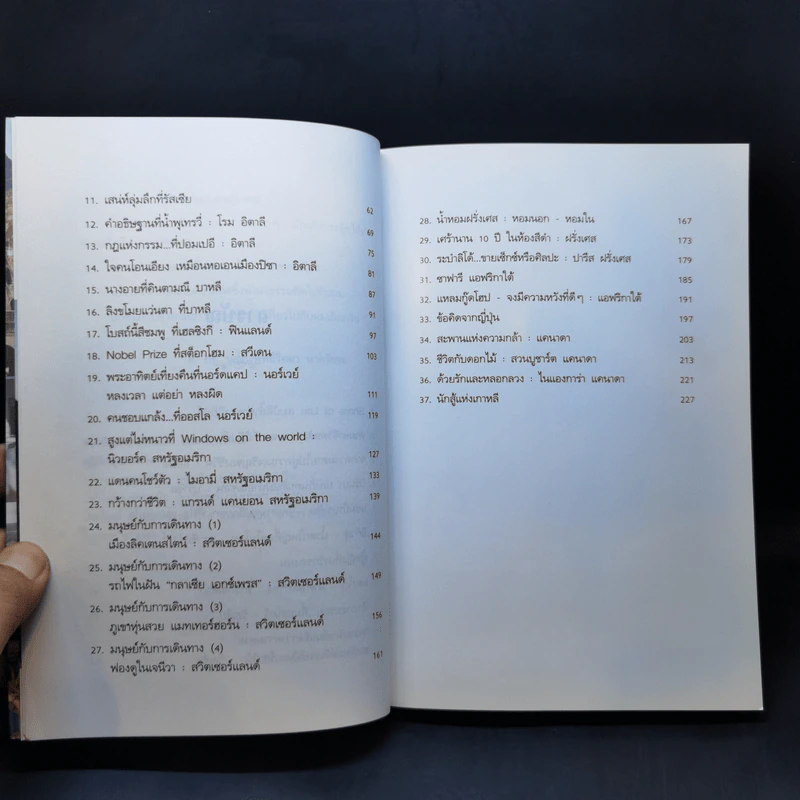 11. เสน่ห์ลุ่มลึกที่รัสเซีย 62
12. คำอธิษฐานที่น้ำพุเทรวี่ : โรม อิตาลี 69
13. กฎแห่งกรรม...ที่ปอมเปอี : อิตาลี 75
14. ใจคนโอนเอียง เหมือนหอเอนเมืองปิซา : อิตาลี 81
15. นางอายที่คินตามณี บาหลี 87
16. ลิงขโมยแว่นตา ที่บาหลี 91
17. โบสถ์นี้สีชมพู ที่เฮลซิงกิ : ฟินแลนด์ 97
18. Nobel Prize ที่สต็อกโฮม : สวีเดน 103
19. พระอาทิตย์เที่ยงคืนที่นอร์ดแคป : นอร์เวย์
หลงเวลา แต่อย่า หลงผิด 111
20. คนชอบแกล้ง...ที่ออสโล นอร์เวย์ 119
21. สูงแต่ไม่หนาวที่ Windows on the world :
นิวยอร์ค สหรัฐอเมริกา 127
22. แดนคนโชว์ตัว : ไมอามี่ สหรัฐอเมริกา 133
23. กว้างกว่าชีวิต : แกรนด์ แคนยอน สหรัฐอเมริกา 139
24. มนุษย์กับการเดินทาง (1)
เมืองลิคเตนสไตน์ : สวิตเซอร์แลนด์ 144
25. มนุษย์กับการเดินทาง (2)
รถไฟในฝัน "กลาเซีย เอกซ์เพรส" : สวิตเซอร์แลนด์ 149
26. มนุษย์กับการเดินทาง (3)
ภูเขาหุ่นสวย แมทเทอร์ฮอร์น : สวิตเซอร์แลนด์ 156
27. มนุษย์กับการเดินทาง (4)
ฟองดูในเจนีวา : สวิตเซอร์แลนด์ 161
28. น้ำหอมฝรั่งเศส : หอมนอก - หอมใน 167
29. เศร้านาน 10 ปี ในห้องสีดำ : ฝรั่งเศส 173
30. ระบำลิโด้...ขายเซ็กซ์หรือศิลปะ : ปารีส ฝรั่งเศส 179
31. ซาฟารี แอฟริกาใต้ 185
32. แหลมกู๊ดโฮป - จงมีความหวังที่ดีๆ : แอฟริกาใต้ 191
33. ข้อคิดจากญี่ปุ่น 197
34. สะพานแห่งความกล้า : แคนาดา 203
35. ชีวิตกับดอกไม้ : สวนบูชาร์ต แคนาดา 213
36. ด้วยรักและหลอกลวง : ไนแองการ่า แคนาดา 221
37. นักสู้แห่งเกาหลี 227